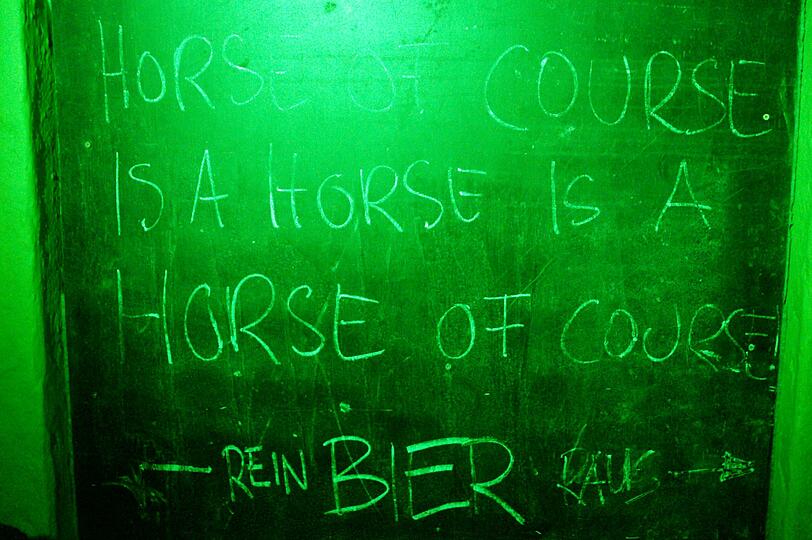 HORSE OF COURSE
IS A HORSE IS A
HORSE OF COURSE
← REIN BIER RAUS →